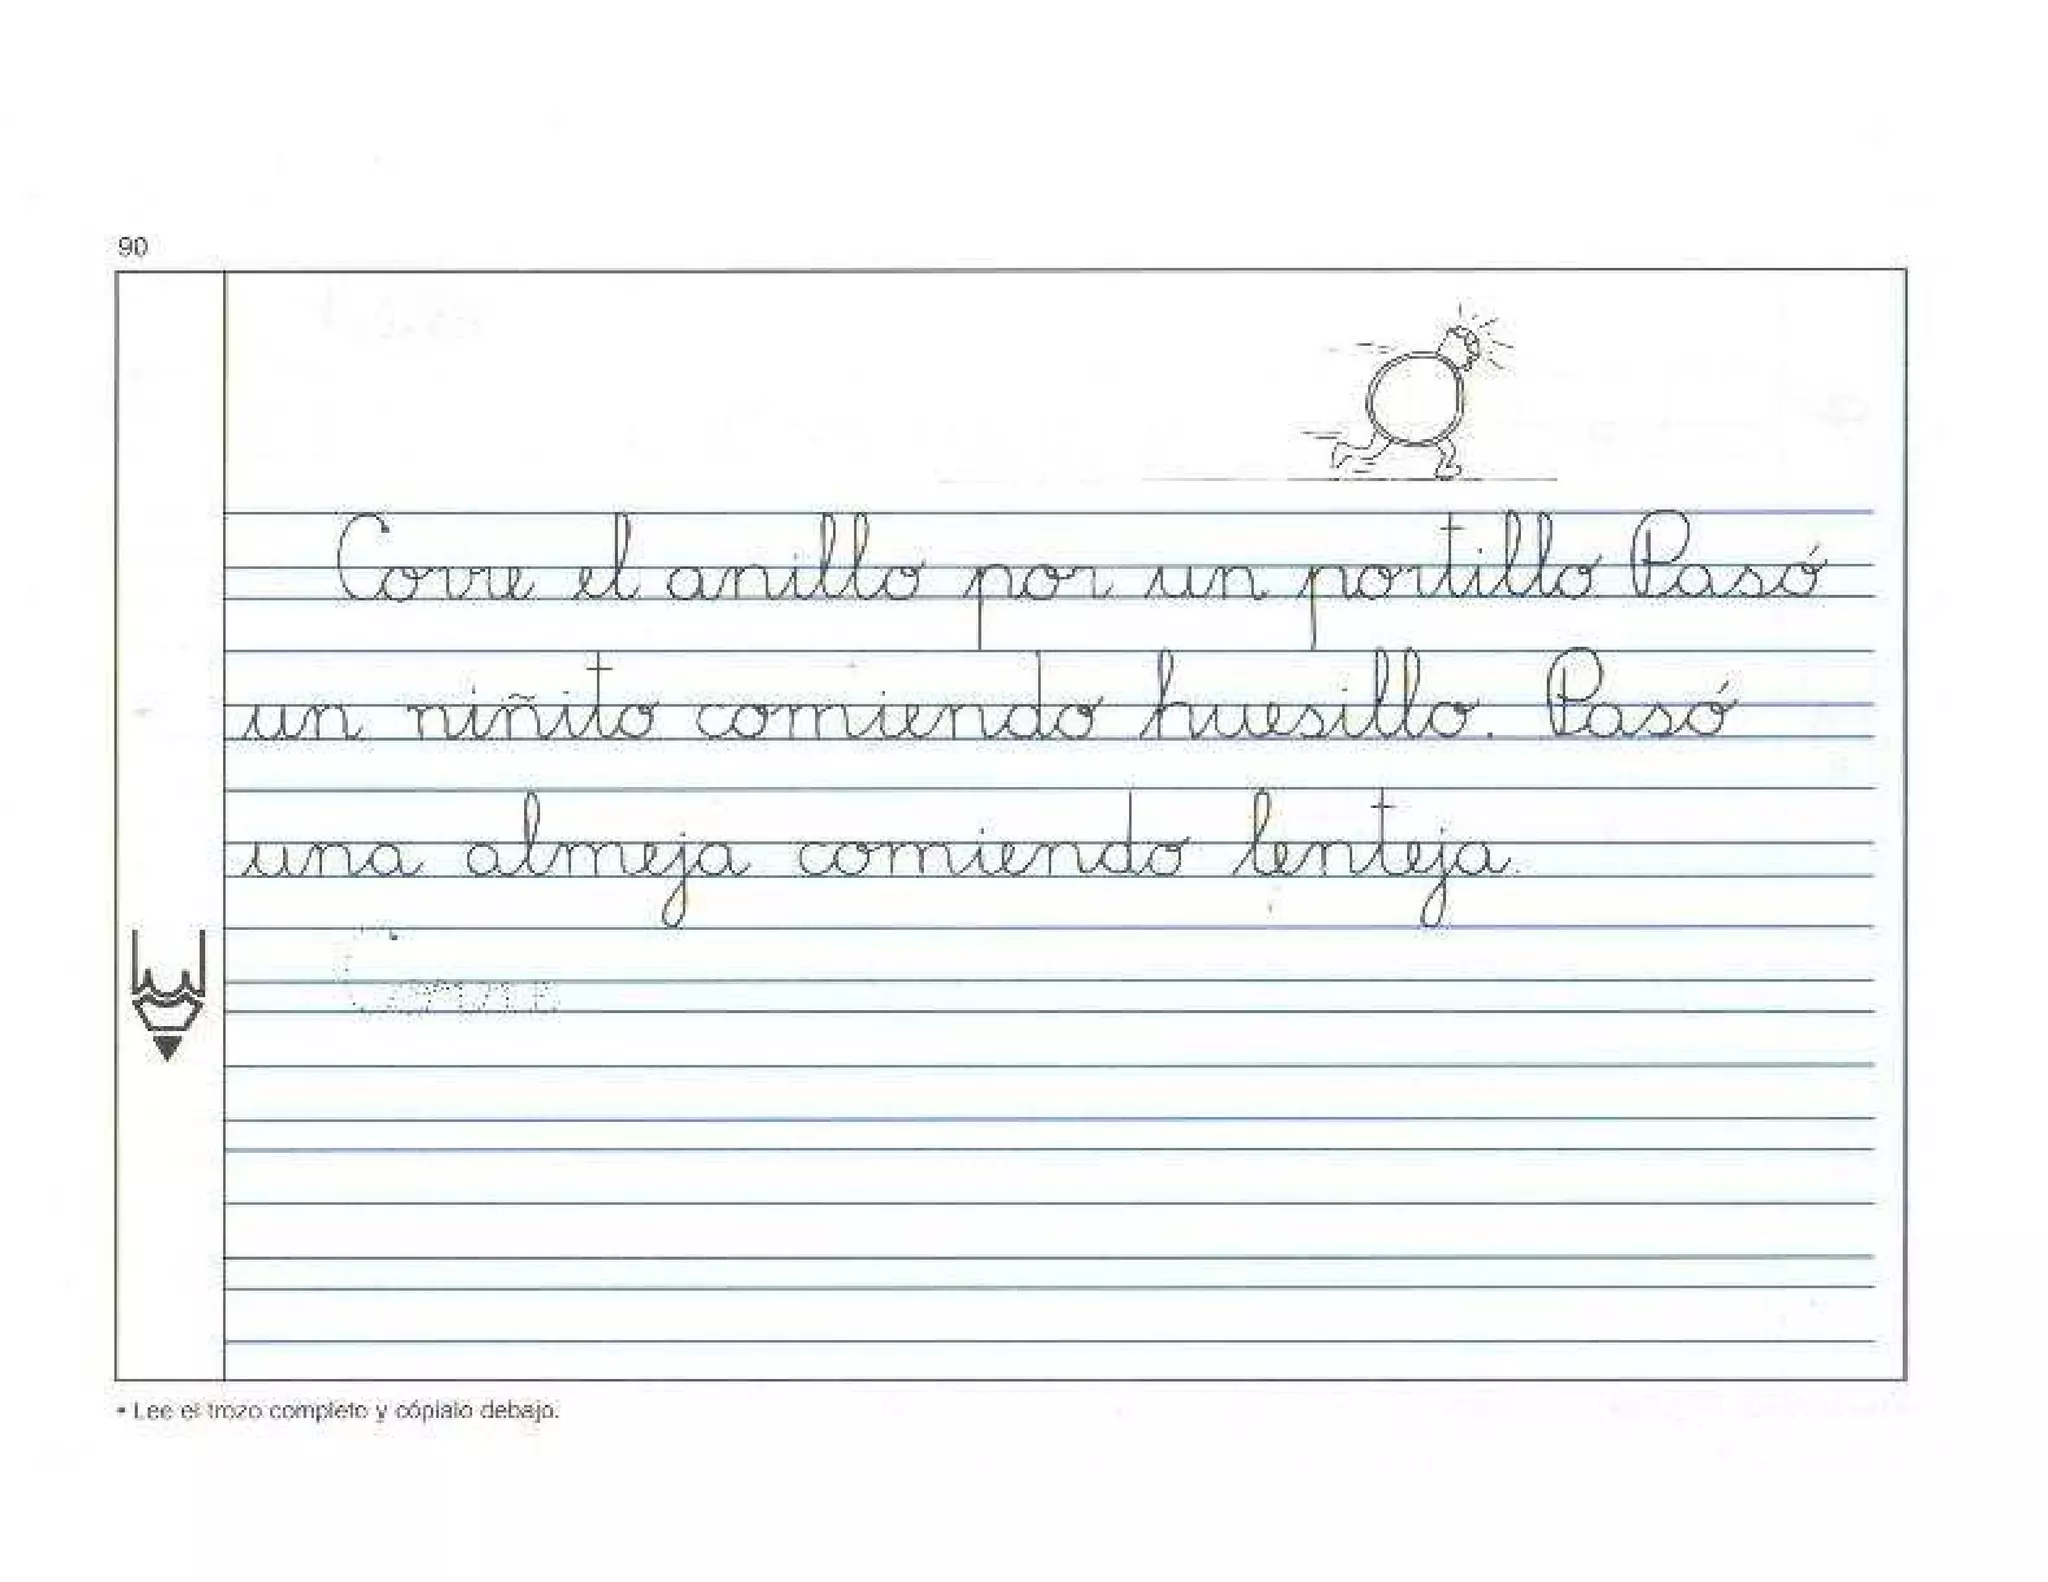 90
Corre el anillo por un portillo Pasó
un niñito comiendo huesillo. Pasó
una almeja comiendo lenteja.
Corre
• Lee el trozo completo y cópialo debajo.